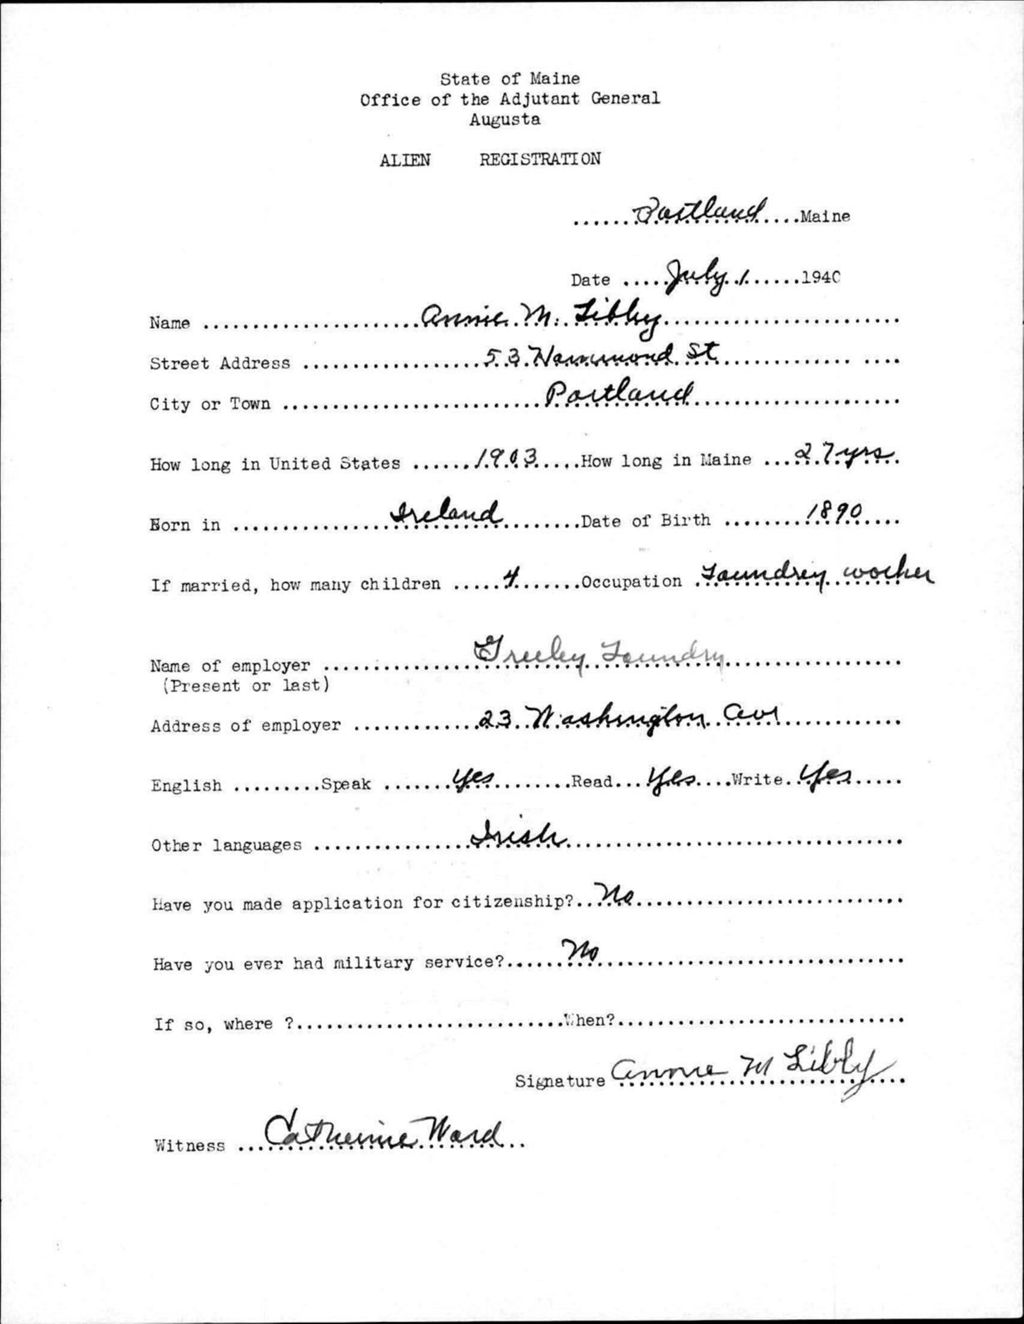 State of Maine
Office of the Adjutant General
Augusta
ALIEN REGISTRATION
......Portland....Maine
Date .....July 1......1940
Name ......................Annie M. Libby........................
Street Address ..................53 Hammond St................ ....
City or Town .........................Portland.....................
How long in United States ......1903.....How long in Maine ...27 yrs.
Born in ...............Ireland........Date of Birth ........1890....
If married, how many children .....4......Occupation .Laundry worker
Name of employer ...............Greeley Laundry..................
(Present or last)
Address of employer ............23 Washington Ave............
English .........Speak .......Yes.........Read...Yes....Write.Yes.....
Other languages ...............Irish.................................
Have you made application for citizenship?..No..........................
Have you ever had military service?......No..............................
If so, where ?..........................When?............................
Signature Annie M Libby....
Witness ...Catherine Ward..